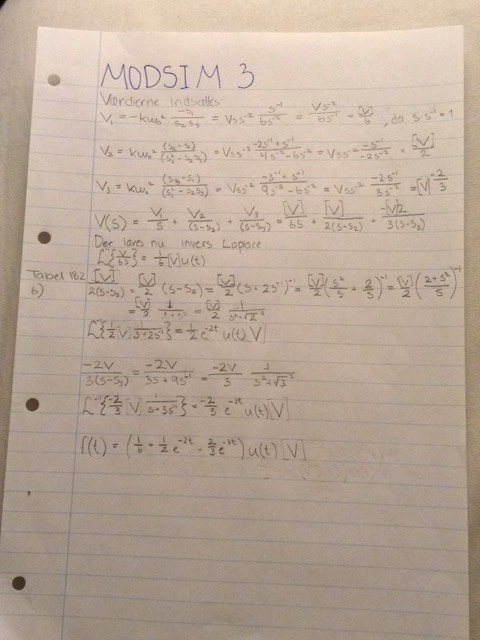 MODSIM 3
Værdierne indsættes
V₁ = -kω₀² -s₁/(s₂s₃) = Vss⁻² s⁻¹/(6s⁻²) = Vs⁻²/(6s⁻¹) = [V]/6, da s·s⁻¹ = 1
V₂ = kω₀² (s₂-s₁)/(s₂²-s₂s₃) = Vss⁻² (-2s⁻¹+s⁻¹)/(4s⁻²-6s⁻²) = Vss⁻² -s⁻¹/(-2s⁻²) = [V]/2
V₃ = kω₀² (s₃-s₁)/(s₃²-s₂s₃) = Vss⁻² (-3⁻¹+s⁻¹)/(9s⁻²-6s⁻²) = Vss⁻² -2s⁻¹/(3s⁻²) = [V] -2/3
V(s) = V₁/s + V₂/(s-s₂) + V₃/(s-s₃) = [V]/6s + [V]/2(s-s₂) + -[V]2/3(s-s₃)
Der laves nu invers Laplace:
L⁻¹{V/6s} = 1/6 [V] u(t)
Tabel 18.2
6) [V]/2(s-s₂) = [V]/2 (s-s₂) = [V]/2 (s+2s⁻¹)⁻¹ = [V]/2 (s²/s + 2/s)⁻¹ = [V]/2 ((2+s²)/s)⁻¹
= [V]/2 = [V]/2 1/(s²+√2²)
L⁻¹{1/2 [V] 1/(s+2s⁻¹)} = 1/2 e⁻²ᵗ u(t)[V]
-2V/3(s-s₃) = -2V/(3s+9s⁻¹) = -2V/3 1/(s²+√3²)
L⁻¹{-2/3 [V] 1/(s+3s⁻¹)} = -2/3 e⁻³ᵗ u(t)[V]
f(t) = (1/6 + 1/2 e⁻²ᵗ - 2/3 e⁻³ᵗ) u(t) [V]